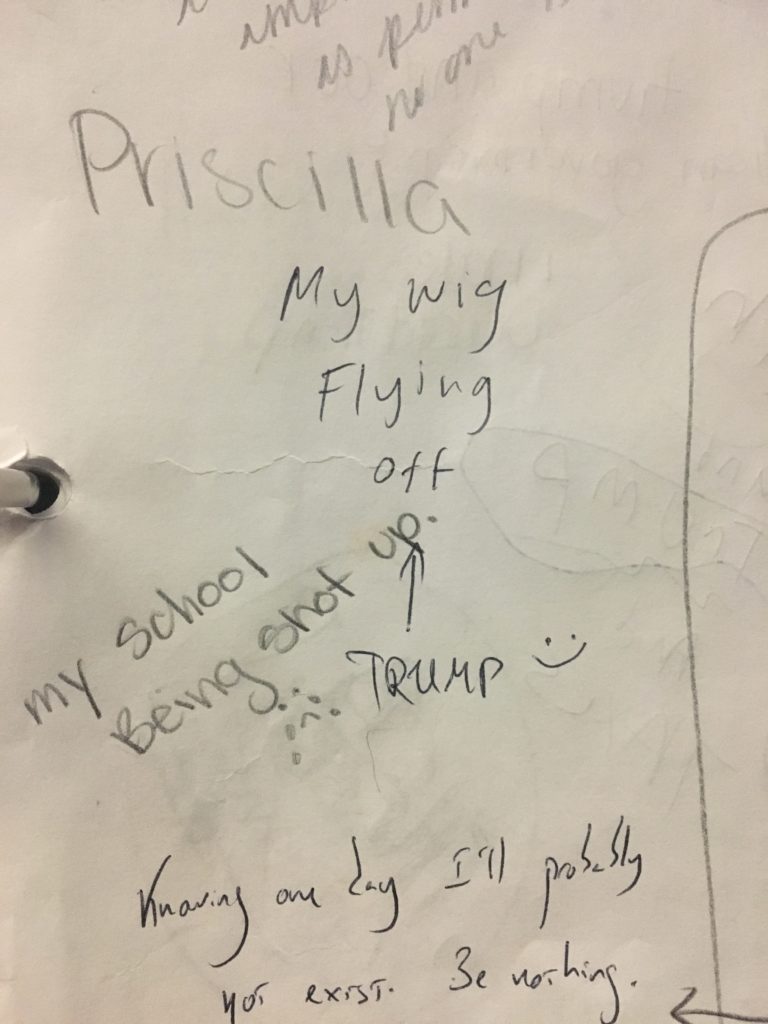 as
no one
Priscilla
My wig
Flying
off
my school
Being shot up.
TRUMP
Knowing one day I'll probably
not exist. Be nothing.